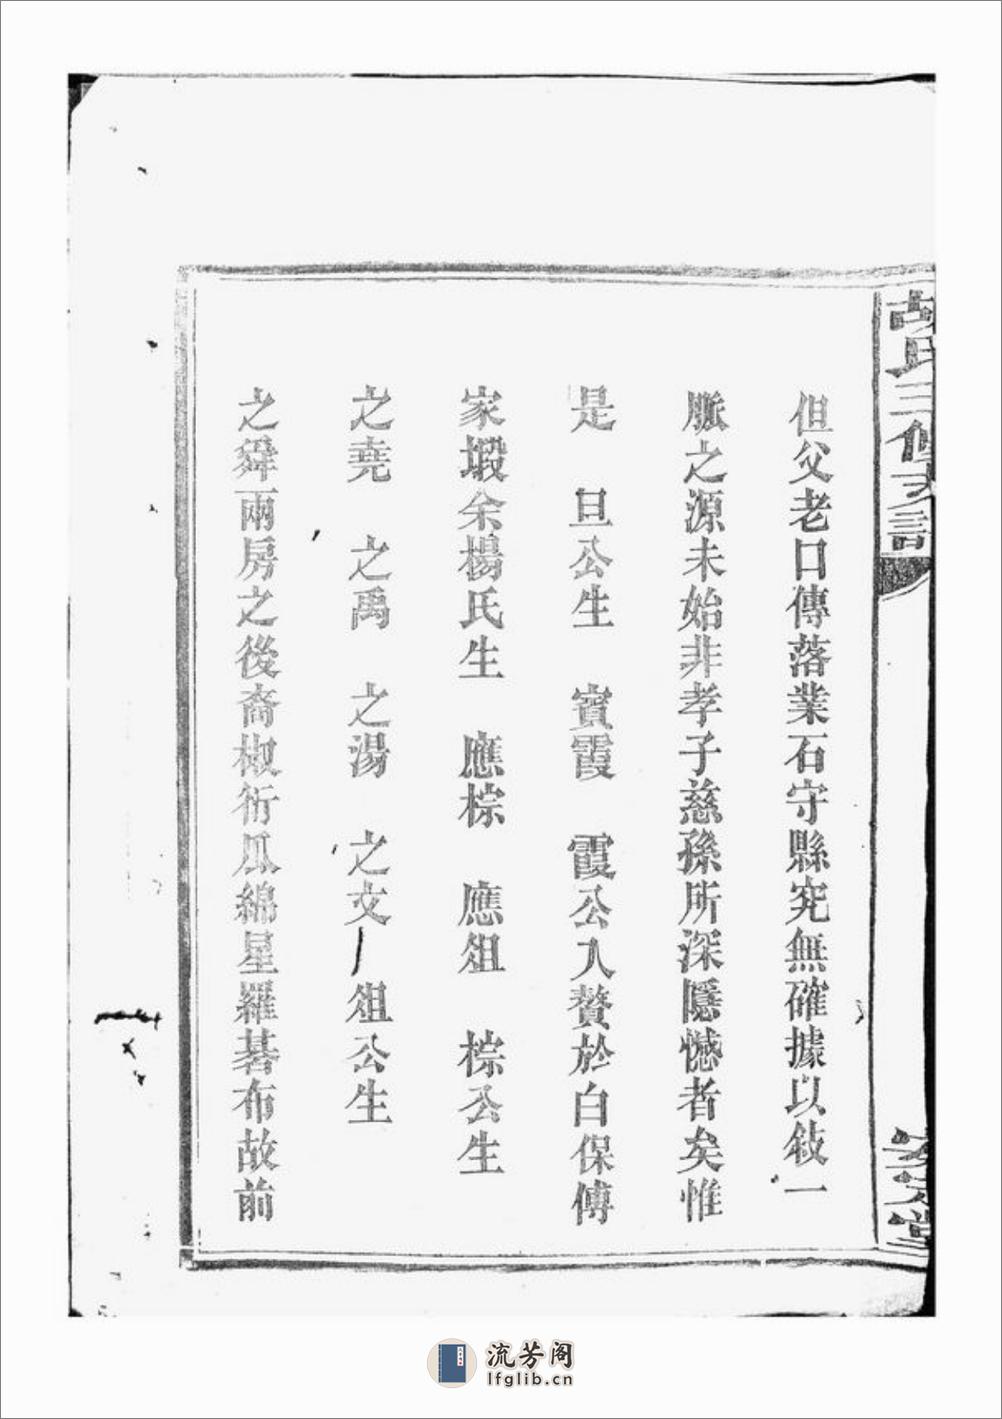 胡氏三修支譜
安定堂
但父老口傳落業石守縣究無確據以敍一
脈之源未始非孝子慈孫所深隱憾者矣惟
是 旦公生 賓霞 霞公入贅於白保傅
家塅余楊氏生 應棕 應俎 棕公生
之堯 之禹 之湯 之文 俎公生
之舜兩房之後裔椒衍瓜綿星羅碁布故前
流芳阁
lfglib.cn